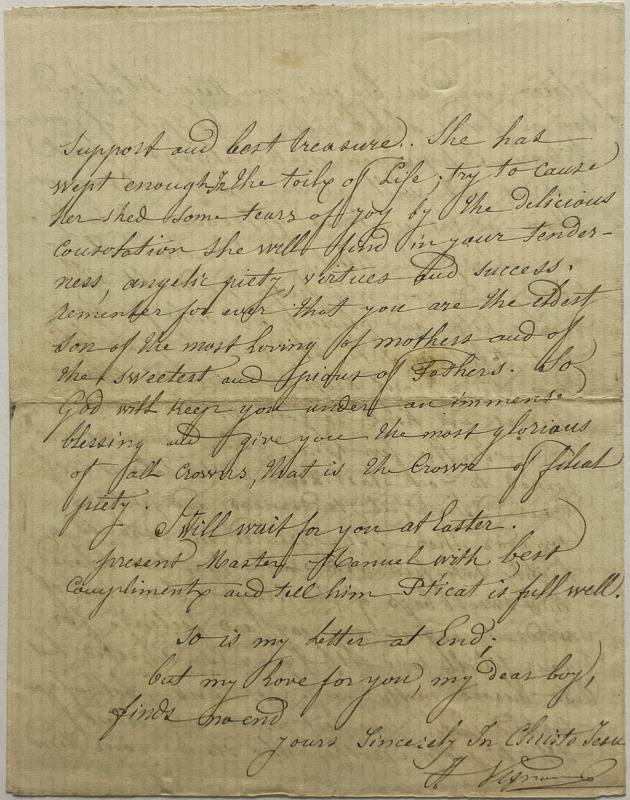 support and best treasure. She has
wept enough In the toils of Life; try to cause
her shed some tears of joy by the delicious
Consolation she will find in your tender-
ness, angelic piety, virtues and success.
remember for ever that you are the eldest
son of the most loving of mothers and of
the sweetest and pious of Fathers. So
God will keep you under an immense
blessing and give you the most glorious
of all Crowns, that is the Crown of filial
piety.
I Will wait for you at Easter.
present Master Manuel with best
Compliments and tell him is full well.
So is my letter at End;
but my Love for you, my dear boy,
finds no end
yours Sincerely In Christo Jesu